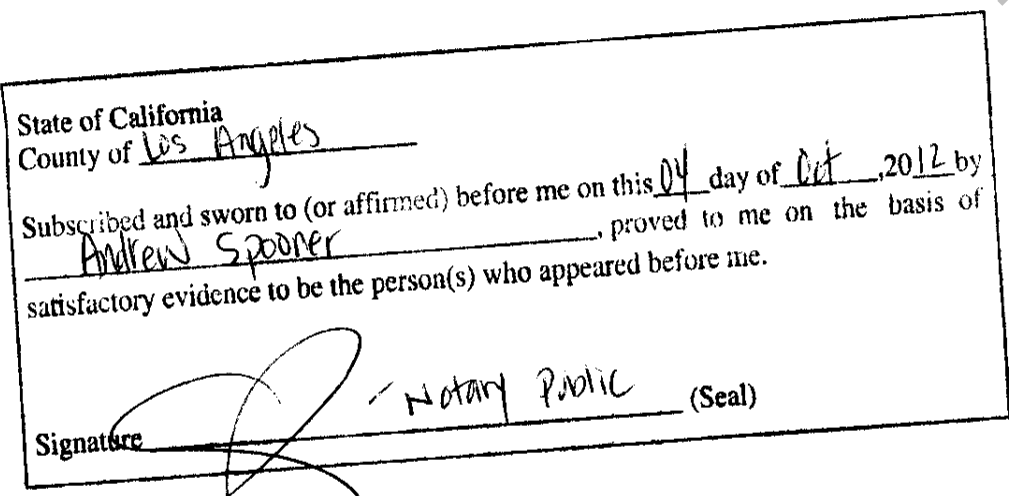 State of California
County of Los Angeles
Subscribed and sworn to (or affirmed) before me on this 04 day of Oct, 2012 by
Andrew Spooner, proved to me on the basis of
satisfactory evidence to be the person(s) who appeared before me.
- Notary Public (Seal)
Signature